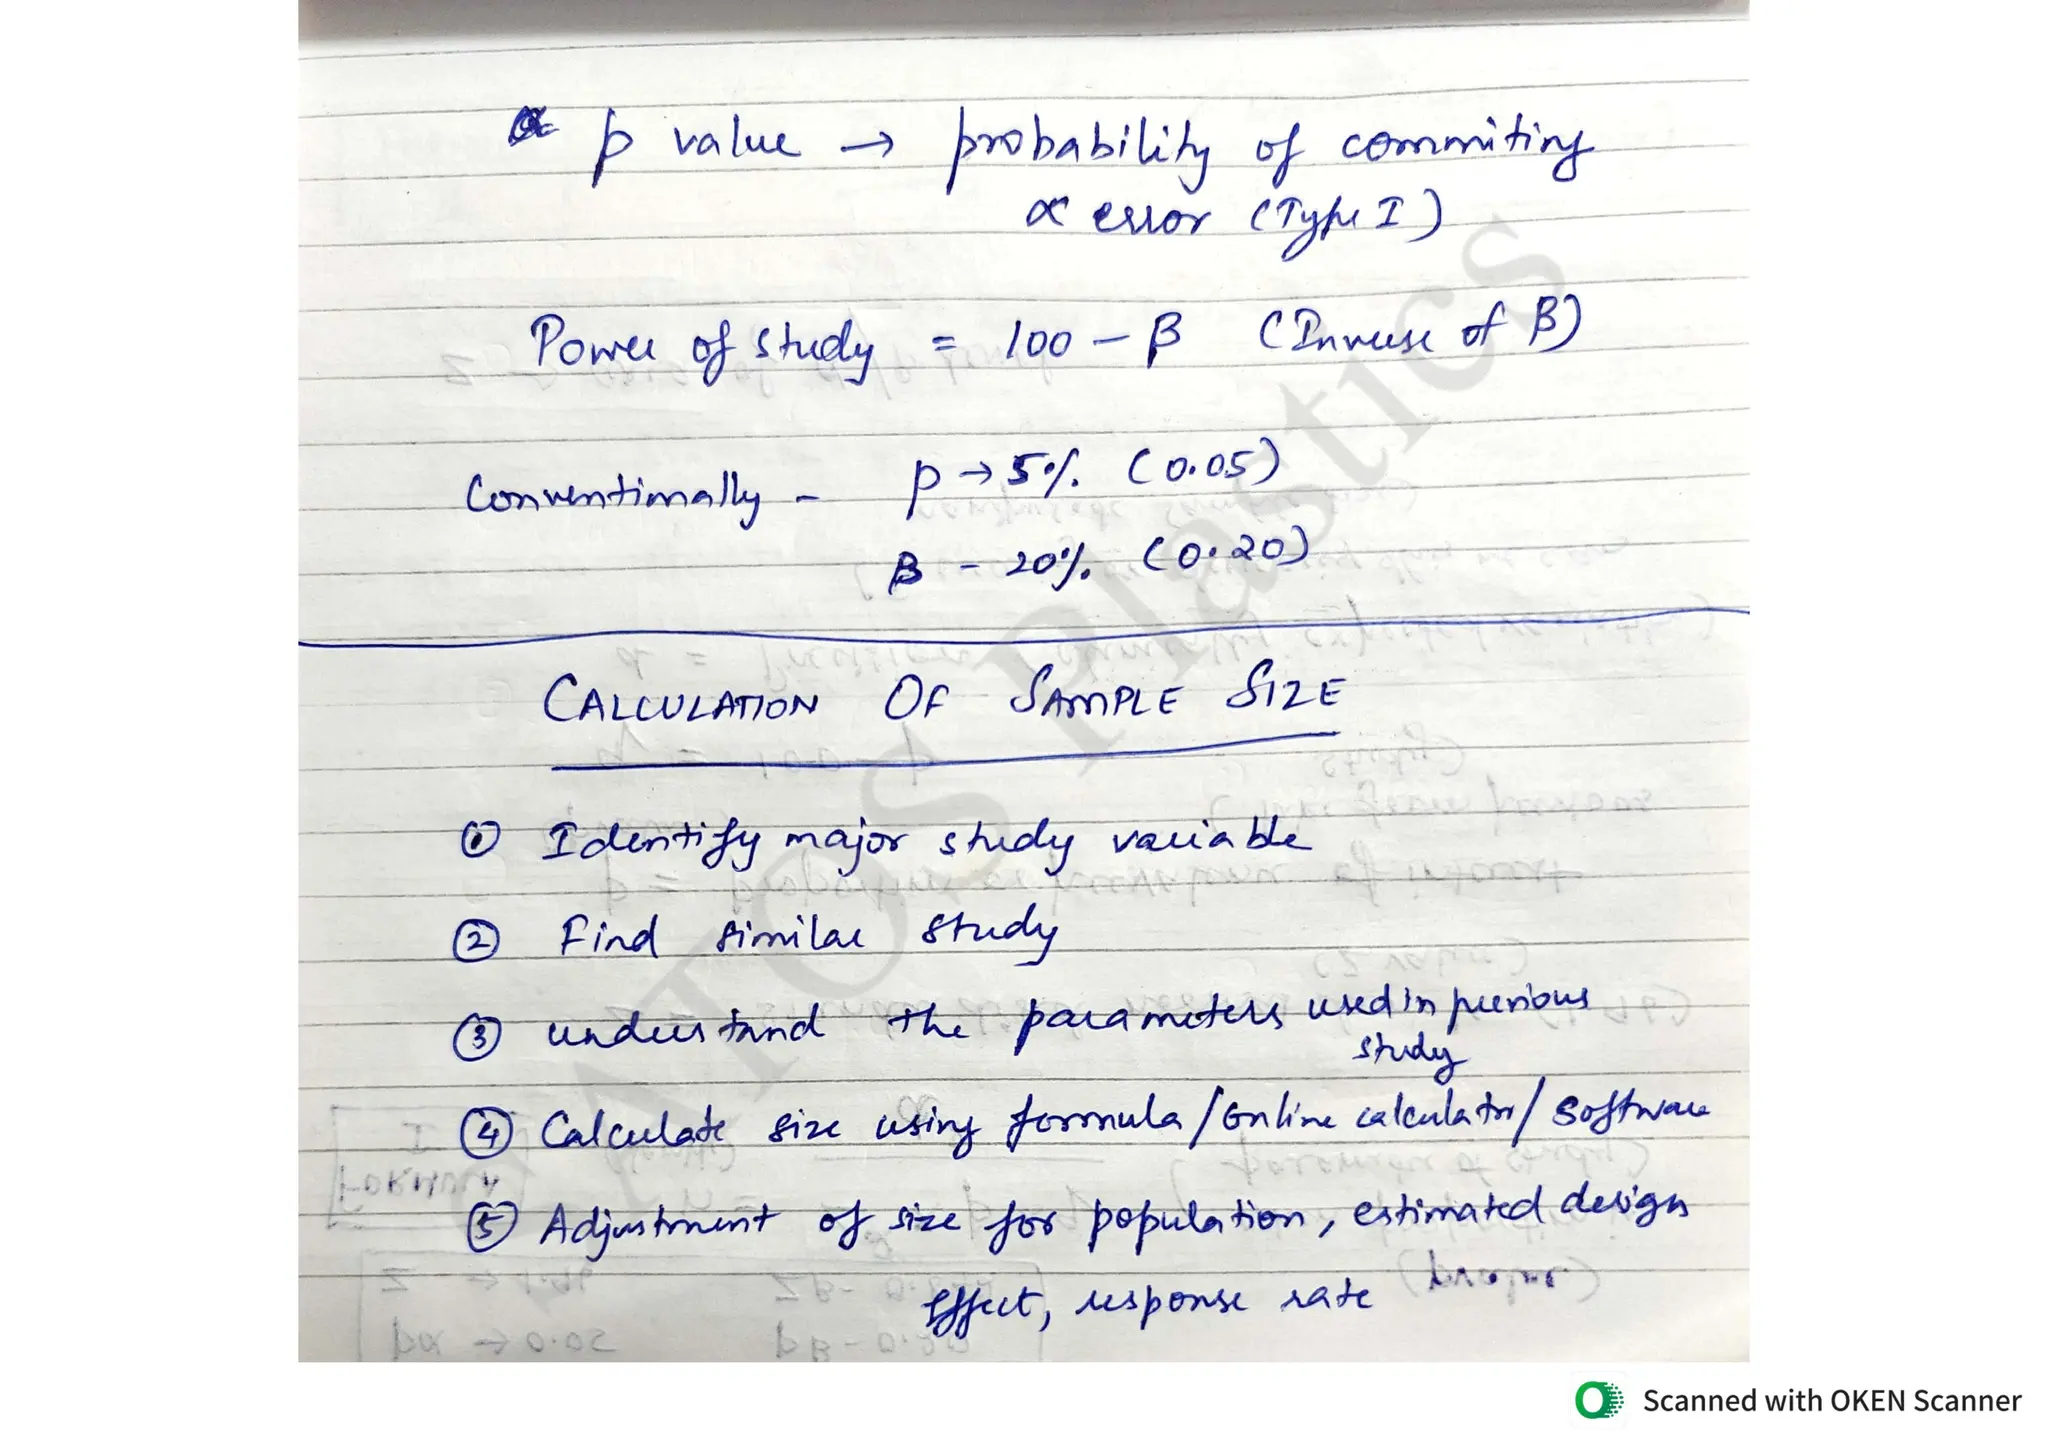 p value → probability of commiting
α error (Type I)
Power of study = 100 - β (Inverse of β)
Conventionally - p → 5% (0.05)
β - 20% (0.20)
CALCULATION OF SAMPLE SIZE
① Identify major study variable
② Find similar study
③ understand the parameters used in previous
study
④ Calculate size using formula/online calculator/software
⑤ Adjustment of size for population, estimated design
effect, response rate
ATOS Plastics
Scanned with OKEN Scanner